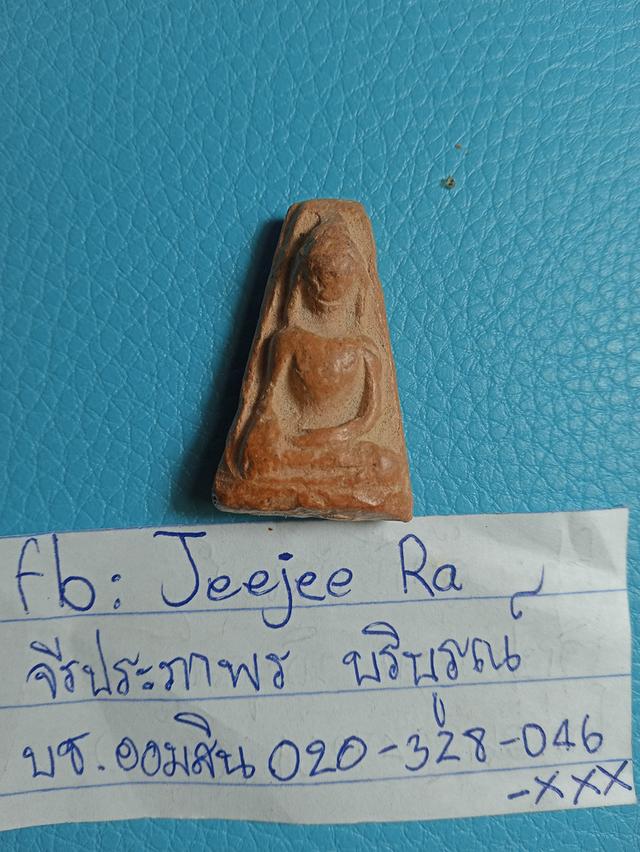 fb: Jeejee Ra
จีรประภาพร บริบูรณ์
บช. ออมสิน 020-328-046
-xxx